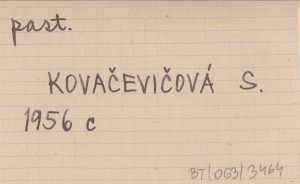 past.
KOVAČEVIČOVÁ S.
1956 c
BT/063/3464